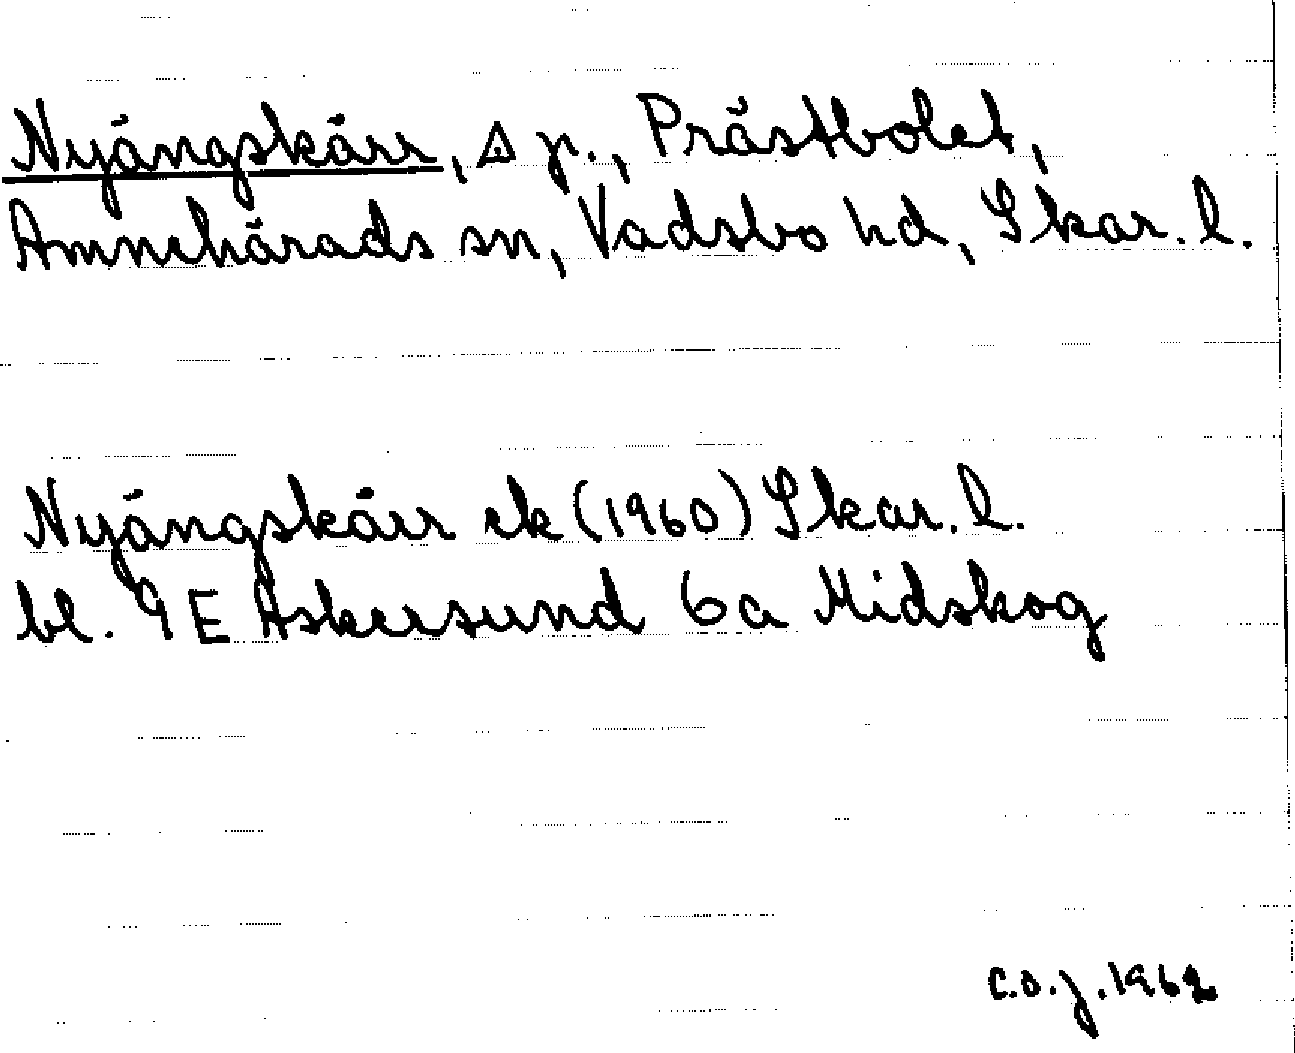 Nyängskärr, △ p., Prästbolet,
Amnehärads sn, Vadsbo hd, Skar. l.
Nyängskärr ek (1960) Skar. l.
bl. 9E Askersund 6a Midskog
C.O.J. 1962